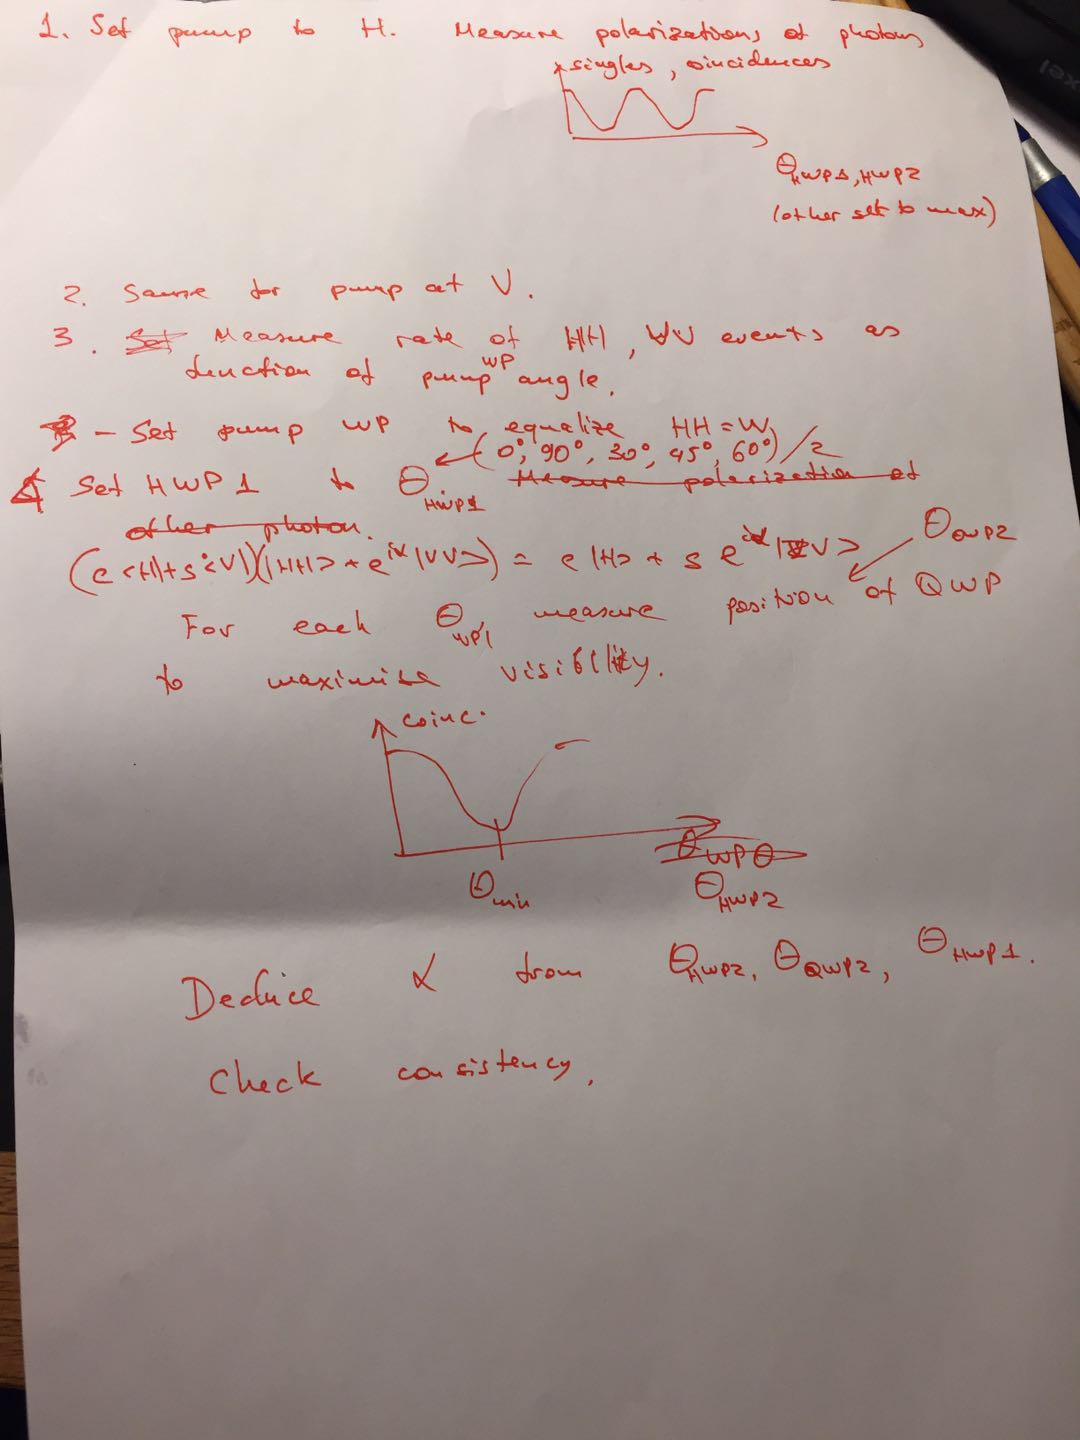 1. Set pump to H. Measure polarizations of photons
singles, coincidences
θHWP1, HWP2
(other set to max)
2. Same for pump at V.
3. Set Measure rate of HH, VV events as
function of pump WP angle.
- Set pump WP to equalize HH = VV
(0°, 90°, 30°, 45°, 60°)/2
4 Set HWP1 to θHWP1 Measure polarization of
other photon.
(c<H|+s<V|)(|HH>+e^iα|VV>) = c|H> + s e^iα|V>
θQWP2
For each θWP1 measure position of QWP
to maximise visibility.
coinc.
θWP θ
θmin
θHWP2
Deduce α from θHWP2, θQWP2, θHWP1.
Check consistency.